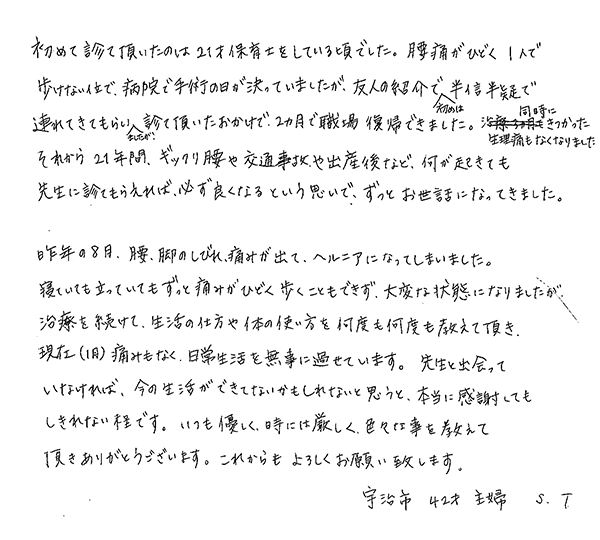 初めて診て頂いたのは21才保育士をしている頃でした。腰痛がひどく1人で
歩けない位で、病院で手術の日が決っていましたが、友人の紹介で初めは半信半疑で
連れてきてもらいましたが、診て頂いたおかげで、2ヵ月で職場復帰できました。同時にきつかった
生理痛もなくなりました
それから21年間、ギックリ腰や交通事故や出産後など、何が起きても
先生に診てもらえれば、必ず良くなるという思いで、ずっとお世話になってきました。
昨年の8月、腰、脚のしびれ、痛みが出て、ヘルニアになってしまいました。
寝ていても立っていてもずっと痛みがひどく歩くこともできず、大変な状態になりましたが
治療を続けて、生活の仕方や体の使い方を何度も何度も教えて頂き、
現在(1月)痛みもなく、日常生活を無事に過せています。先生と出会って
いなければ、今の生活ができてないかもしれないと思うと、本当に感謝しても
しきれない程です。いつも優しく、時には厳しく、色々な事を教えて
頂きありがとうございます。これからもよろしくお願い致します。
宇治市 42才 主婦 S.T